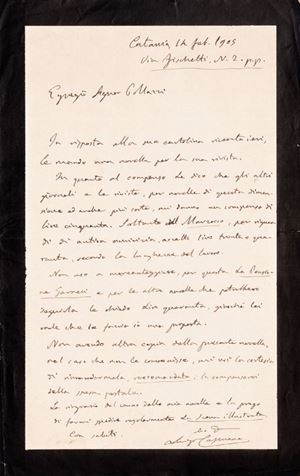 Catania 14 feb. 1905
Via Fischetti, N. 2. p.p.
Egregio Signor
In risposta alla sua cartolina ricevuta ieri,
le mando una novella per la sua rivista.
In quanto al compenso le dico che gli altri
giornali e le riviste, per novelle di questa dimen-
sione ed anche più corte, mi danno un compenso di
lire cinquanta. Soltanto Il Marzocco, per riguar-
di di antica amicizia, accetto lire trenta o qua-
ranta, secondo la lunghezza del lavoro.
Non uso a mercanteggiare, per questa
e per le altre novelle che potrebbero
seguirla le chiedo Lire quaranta, giacché lei
vuole che le faccia io una proposta.
Non avendo altra copia della presente novella,
nel caso che non le convenisse, mi usi la cortesia
di rimandarmela, raccomandata; la compenserei
della spesa postale.
La ringrazio del cenno della mia novella e la prego
di farmi spedire regolarmente La illustrata
Con saluti.
Luigi Capuana